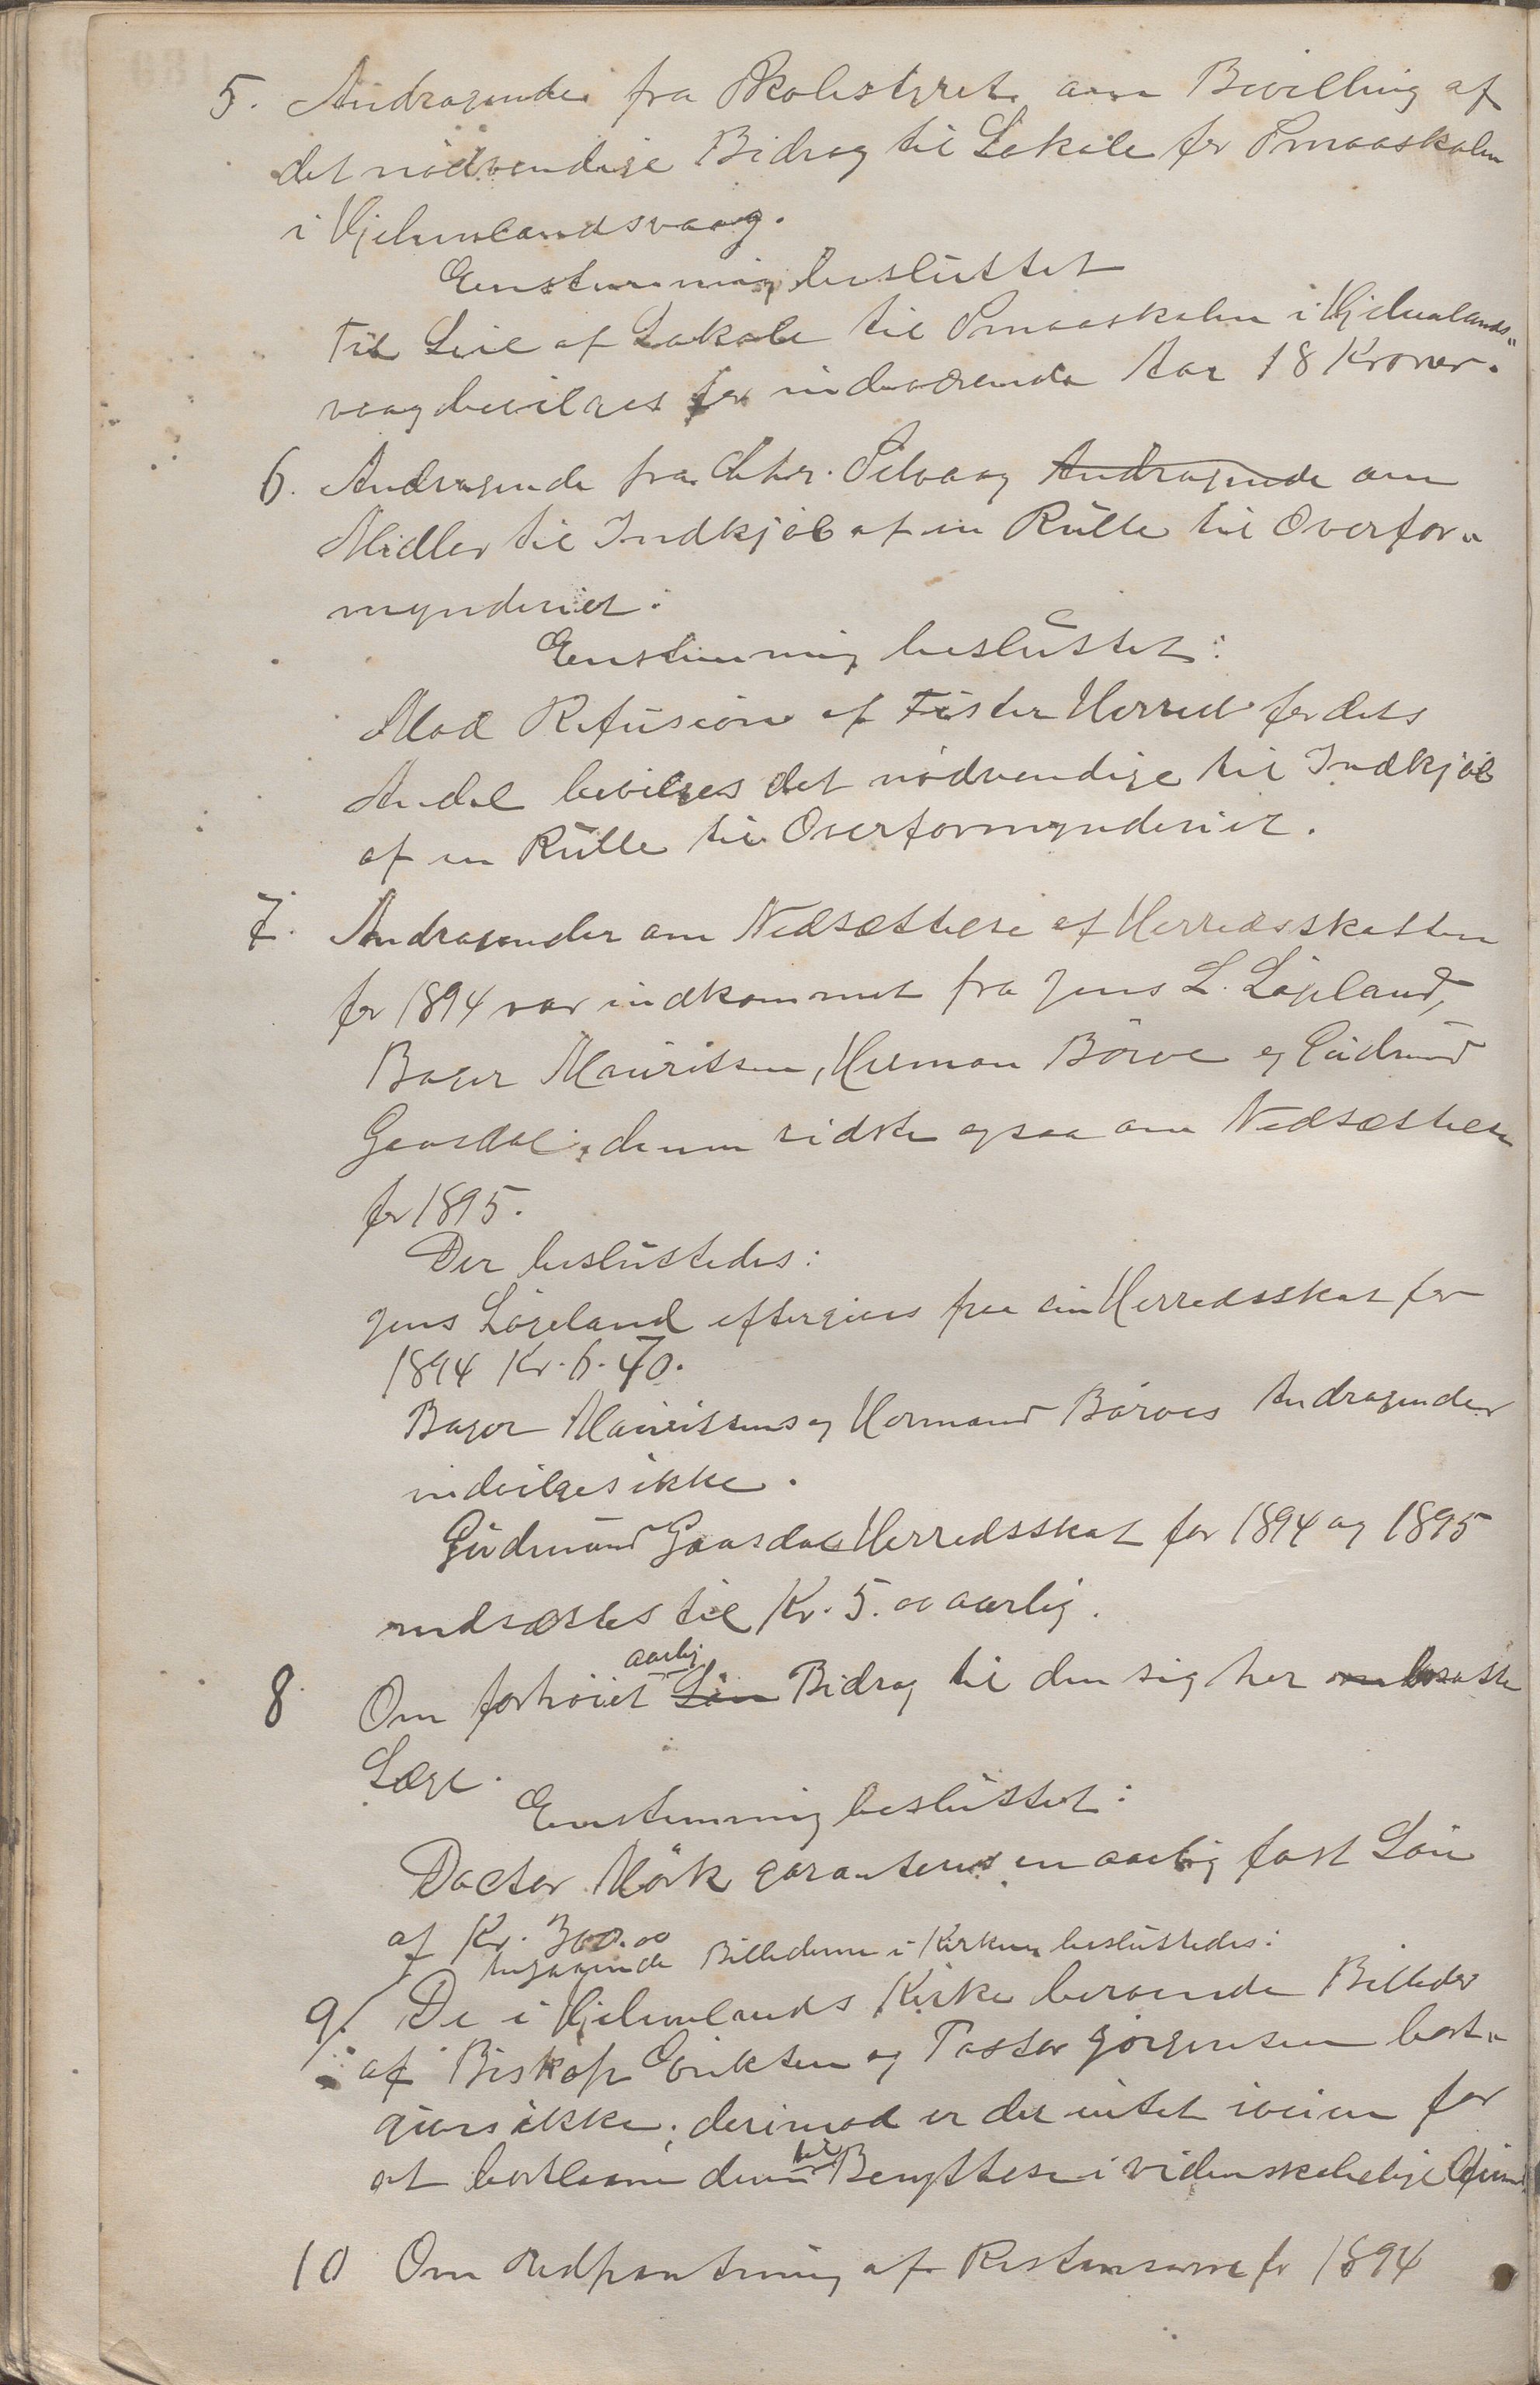 5. Andragende fra Skolestyret om Bevilling af
det nödvendige Bidrag til Lokale for Smaaskolen
i Hjelmelandsvaag.
Eenstemmig besluttet
Til Leie af Lokale til Smaaskolen i Hjelmelands„
vaag bevilges for indeværende Aar 18 Kroner.
6. Andragende fra Chr. Selvaag Andragende om
Midler til Indkjöb af en Rulle til Overfor„
mynderiet:
Eenstemmig besluttet:
Mod Refusion af Fister Herred for dets
Andel bevilges det nödvendige til Indkjöb
af en Rulle til Overformynderiet.
7. Andragender om Nedsættelse af Herredsskatten
for 1894 var indkommet fra Jens L. Lögeland,
Bager Mauritsen, Herman Börve og Gudmund
Gaasdal; denne sidste ogsaa om Nedsættelse
for 1895.
Der besluttedes:
Jens Lögeland eftergives fra sin Herredsskat for
1894 Kr. 6.40.
Bager Mauritsens og Hermand Börves Andragender
indvilges ikke.
Gudmund Gaasdals Herredsskat for 1894 og 1895
nedsættes til Kr. 5.00 aarlig.
8. Om forhöiet Lön aarlig Bidrag til den sig her bosatte
Læge.
Eenstemmig besluttet:
Doctor Mörk garanteres en aarlig fast Lön
af Kr. 300.00
Angaaende Billederne i Kirken besluttedes:
9/. De i Hjelmelands Kirke beroende Billeder
af Biskop Eriksen og Pastor Jörgensen bort„
gives ikke; derimod er der intet iveien for
at bortlaane dem til Benyttelse i videnskabelige Øiem.
10 Om Udpantning af Restancerne for 1894